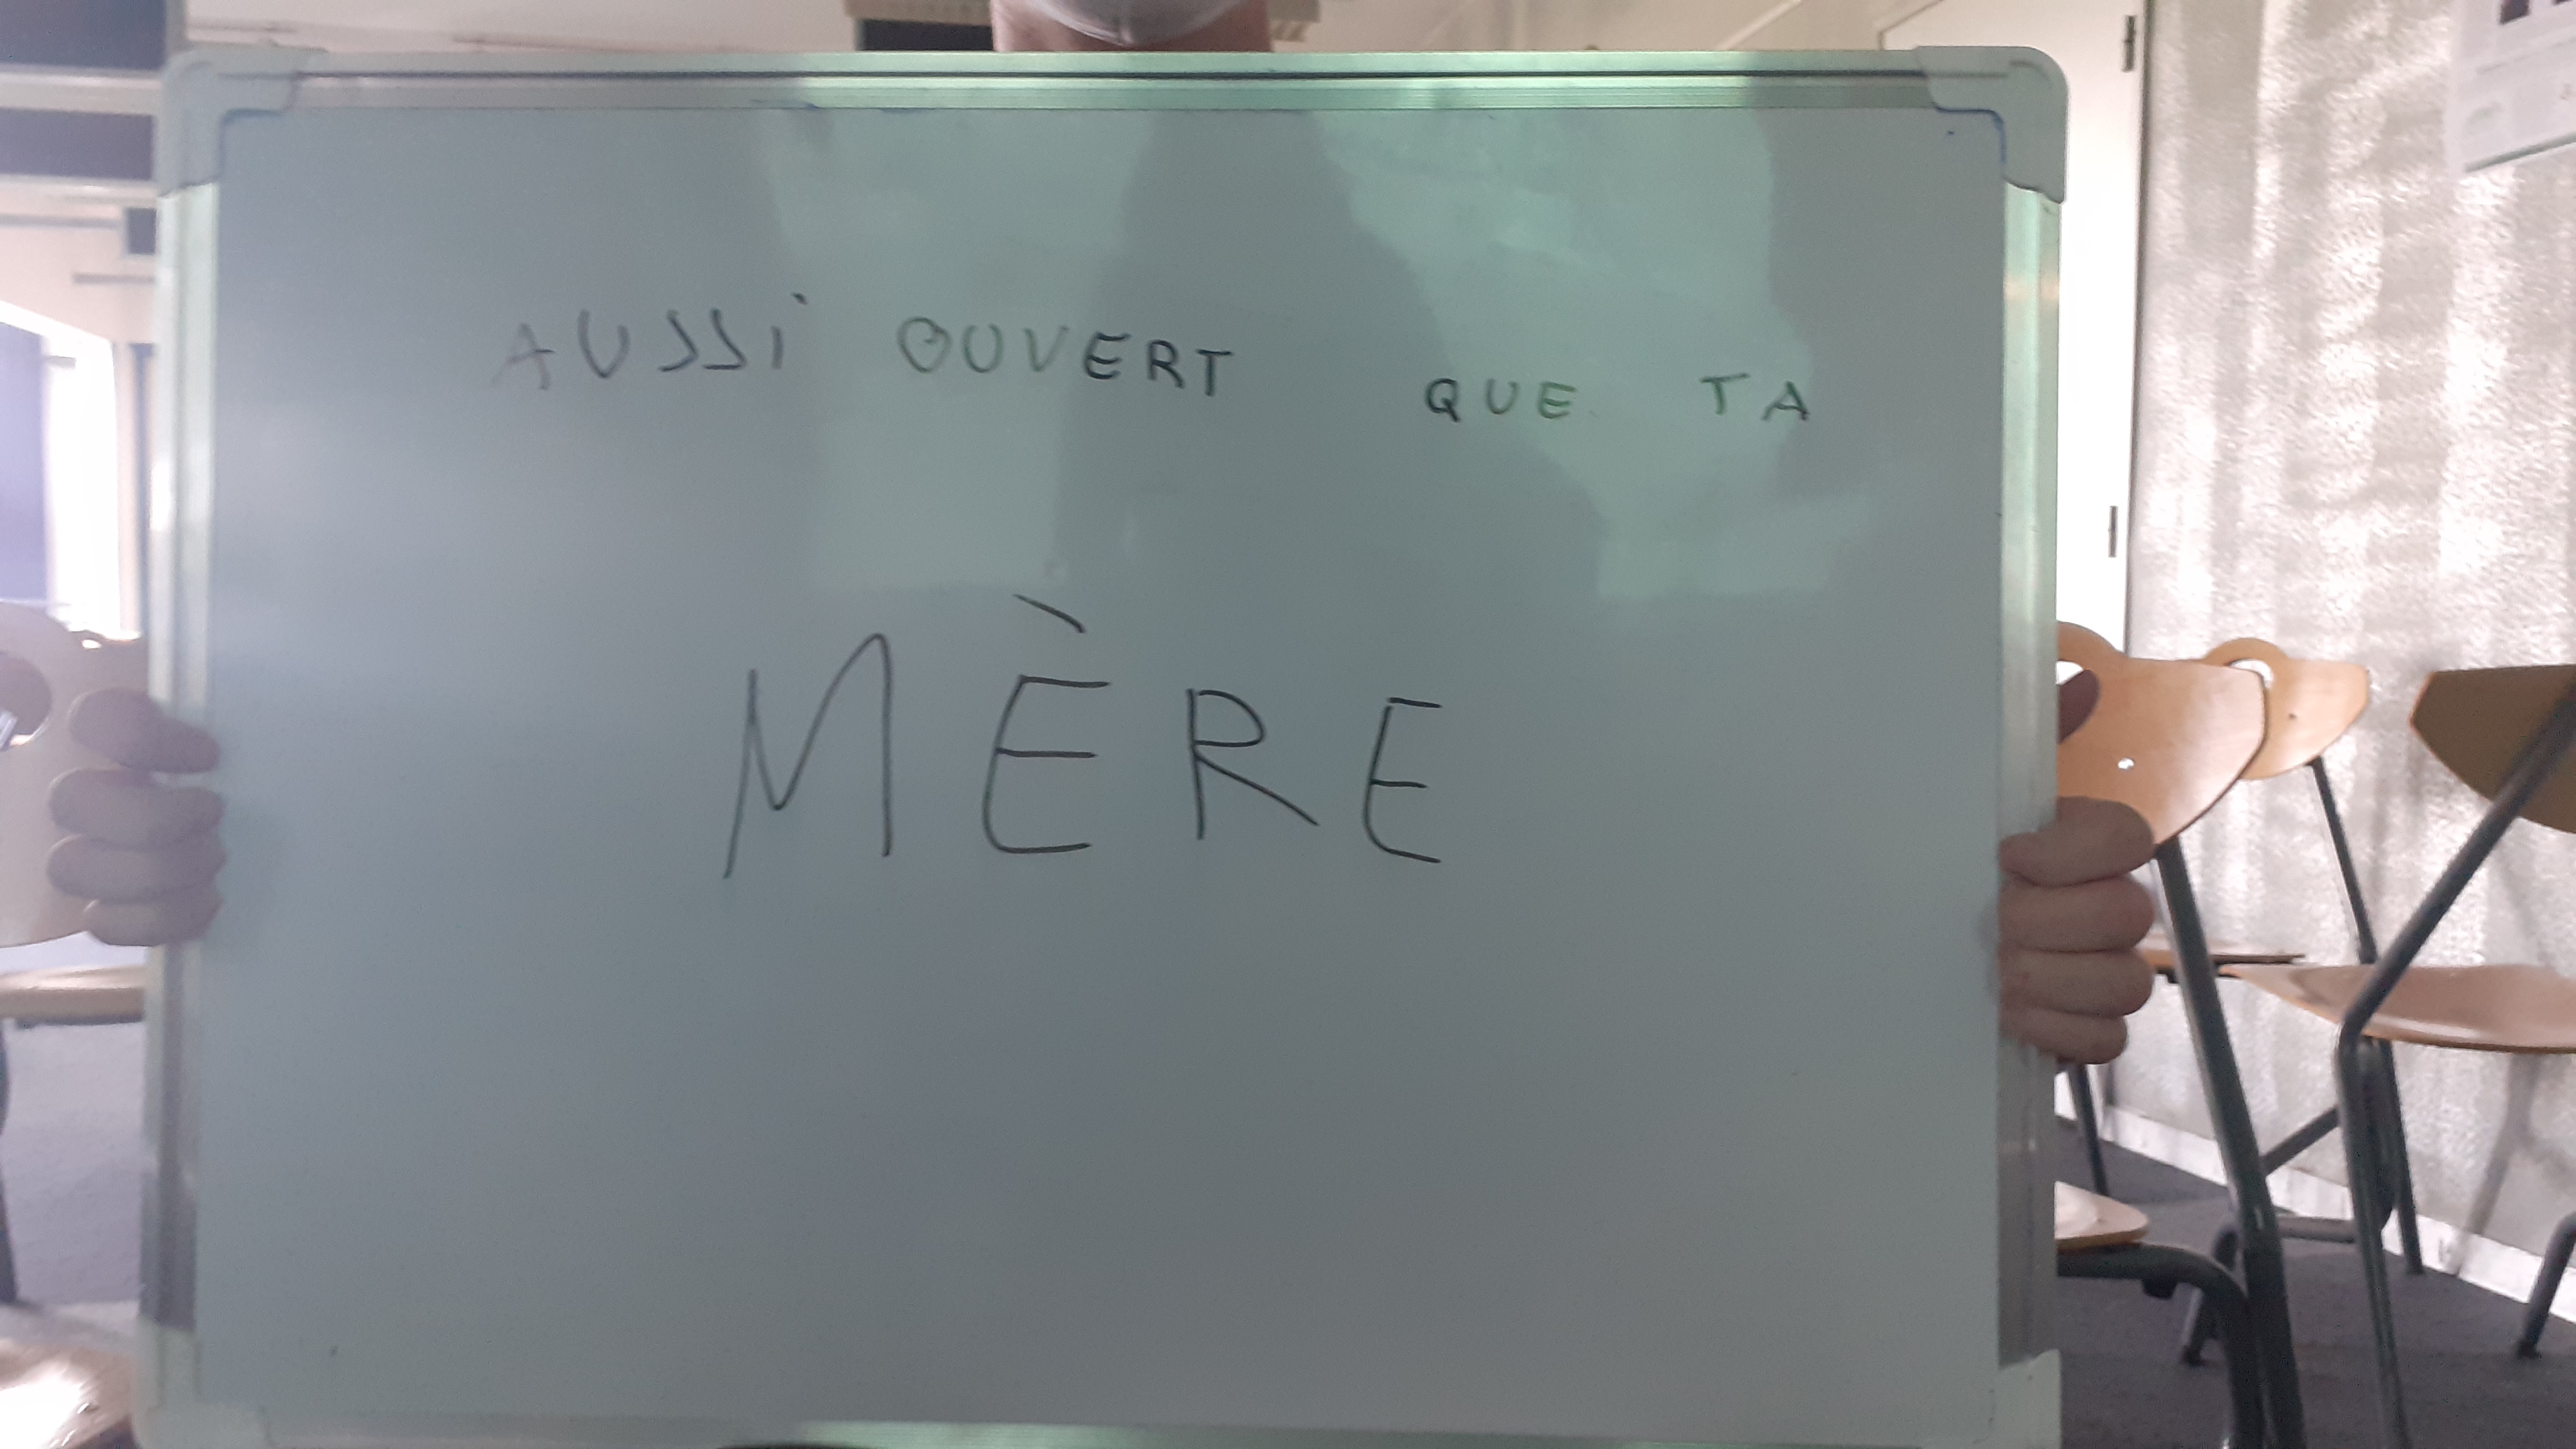 AUSSi OUVERT QUE TA
MÈRE